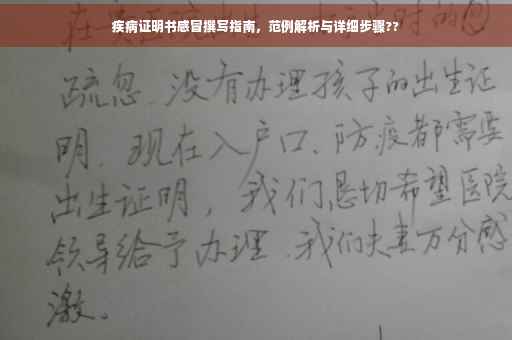 疾病证明书感冒撰写指南，范例解析与详细步骤??
疏忽、没有办理孩子的出生证
明、现在入户口、防疫都需要
出生证明，我们恳切希望医院
领导给予办理、我们夫妻万分感
激。